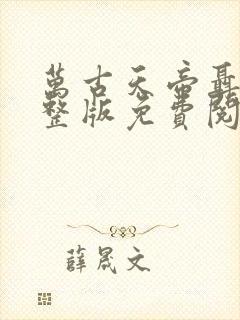 萬古天帝聶
整版免費閱
薛晟文